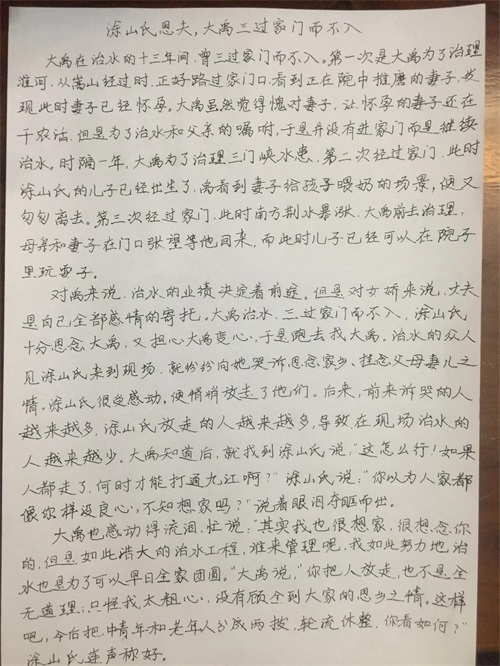 涂山氏思夫，大禹三过家门而不入
大禹在治水的十三年间，曾三过家门而不入。第一次是大禹为了治理
淮河，从嵩山经过时，正好路过家门口，看到正在院中推磨的妻子，发
现此时妻子已经怀孕，大禹虽然觉得愧对妻子，让怀孕的妻子还在
干农活，但是为了治水和父亲的嘱咐，于是并没有进家门而是继续
治水。时隔一年，大禹为了治理三门峡水患，第二次经过家门，此时
涂山氏的儿子已经出生了，禹看到妻子给孩子喂奶的场景，便又
匆匆离去。第三次经过家门，此时南方荆水暴涨，大禹前去治理，
母亲和妻子在门口张望等他回来，而此时儿子已经可以在院子
里玩耍子。
对禹来说，治水的业绩决定着前途。但是对女娇来说，丈夫
是自己全部感情的寄托。大禹治水，三过家门而不入，涂山氏
十分思念大禹，又担心大禹变心，于是跑去找大禹。治水的众人
见涂山氏来到现场，就纷纷向她哭诉思念家乡，挂念父母妻儿之
情。涂山氏很受感动，便悄悄放走了他们。后来，前来诉哭的人
越来越多，涂山氏放走的人越来越多，导致在现场治水的
人越来越少。大禹知道后，就找到涂山氏说，“这怎么行！如果
人都走了，何时才能打通九江啊？”涂山氏说：“你以为人家都
像你样没良心，不知想家吗？”说着眼泪夺眶而出。
大禹也感动得流泪，忙说：“其实我也很想家，很想念你
的，但是如此浩大的治水工程，谁来管理呢，我如此努力地治
水也是为了可以早日全家团圆。”大禹说，“你把人放走，也不是全
无道理，只怪我太粗心，没有顾全到大家的思乡之情。这样
吧，今后把中青年和老年人分成两拨，轮流休整，你看如何？”
涂山氏连声称好。